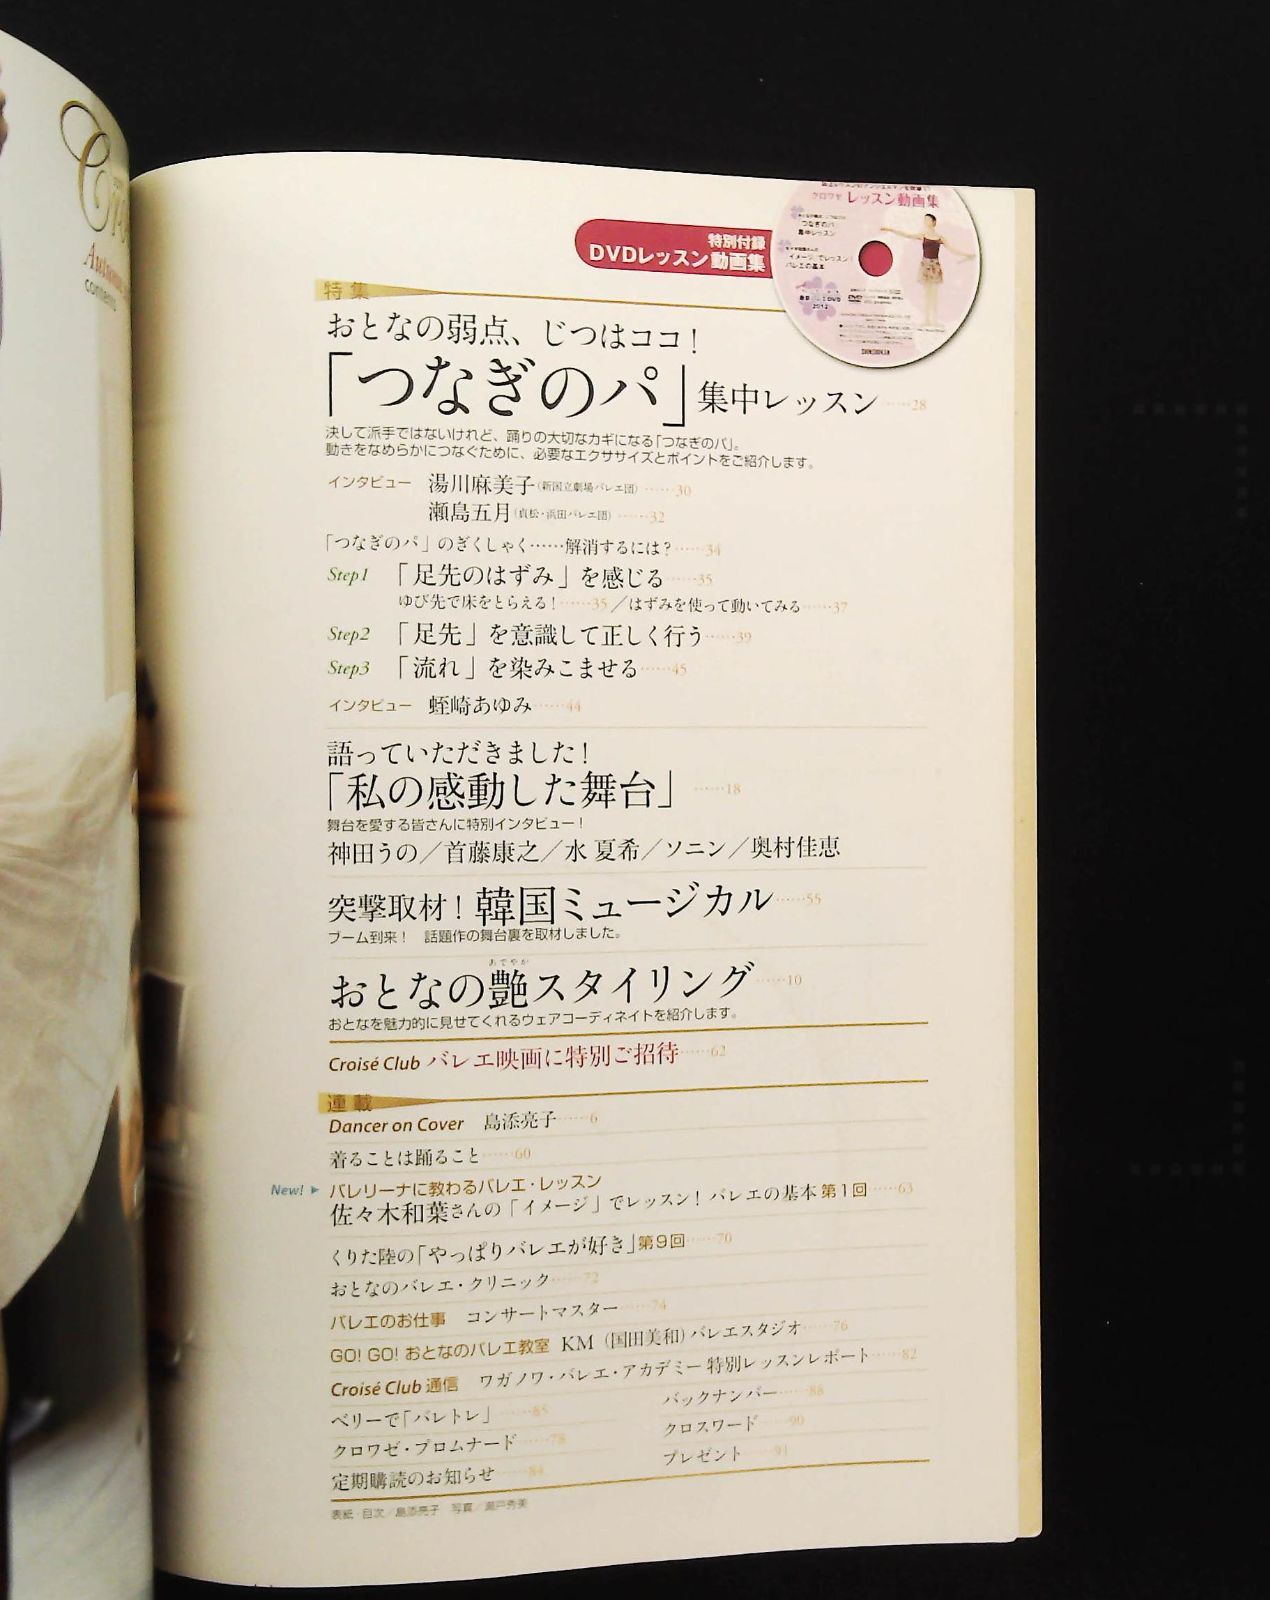 Autumn
contents
特別付録
DVDレッスン動画集
クロワゼ レッスン動画集
つなぎのパ
集中レッスン
「イメージ」でレッスン!
バレエの基本
DVD
2012
SHINSHOKAN
特集
おとなの弱点、じつはココ!
「つなぎのパ」集中レッスン……28
決して派手ではないけれど、踊りの大切なカギになる「つなぎのパ」。
動きをなめらかにつなぐために、必要なエクササイズとポイントをご紹介します。
インタビュー 湯川麻美子(新国立劇場バレエ団)……30
瀬島五月(貞松・浜田バレエ団)……32
「つなぎのパ」のぎくしゃく……解消するには?……34
Step1 「足先のはずみ」を感じる……35
ゆび先で床をとらえる!……35/はずみを使って動いてみる……37
Step2 「足先」を意識して正しく行う……39
Step3 「流れ」を染みこませる……45
インタビュー 蛭崎あゆみ……44
語っていただきました!
「私の感動した舞台」……18
舞台を愛する皆さんに特別インタビュー!
神田うの/首藤康之/水 夏希/ソニン/奥村佳恵
突撃取材!韓国ミュージカル……55
ブーム到来! 話題作の舞台裏を取材しました。
あでやか
おとなの艶スタイリング……10
おとなを魅力的に見せてくれるウェアコーディネイトを紹介します。
Croisé Club バレエ映画に特別ご招待……62
連載
Dancer on Cover 島添亮子……6
着ることは踊ること……60
New! ▶ バレリーナに教わるバレエ・レッスン
佐々木和葉さんの「イメージ」でレッスン! バレエの基本 第1回……63
くりた陸の「やっぱりバレエが好き」第9回……70
おとなのバレエ・クリニック……72
バレエのお仕事 コンサートマスター……74
GO! GO! おとなのバレエ教室 KM(国田美和)バレエスタジオ……76
Croisé Club 通信 ワガノワ・バレエ・アカデミー 特別レッスンレポート……82
ベリーで「バレトレ」……85
クロワゼ・プロムナード……78
定期購読のお知らせ……84
バックナンバー……88
クロスワード……90
プレゼント……91
表紙・目次/島添亮子 写真/瀬戸秀美